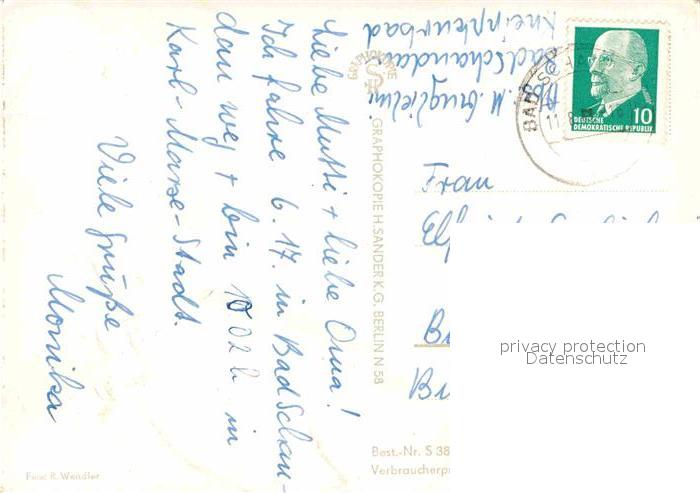 Liebe Mutti + liebe Oma!
Ich fahre 6.17. in Bad Schan-
dau weg + bin 10.02 h in
Karl-Marx-Stadt.
Viele Grüße
Monika
Foto: R. Wendler
GRAPHOKOPIE
GRAPHOKOPIE H. SANDER K.G. BERLIN N 58
Best.-Nr. S 38
Verbraucherpr
Abs. M.
Bad Schandau
Kneippkurbad
BAD SCHA
11.
10
DEUTSCHE
DEMOKRATISCHE REPUBLIK
Frau
privacy protection
Datenschutz